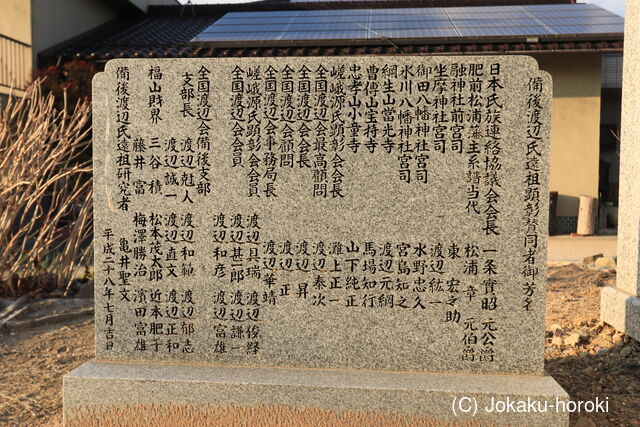 備後渡辺氏遠祖顕彰賛同者御芳名
日本氏族連絡協議会会長 一条實昭 元公爵
肥前松浦藩主系譜当代 松浦章 元伯爵
融神社前宮司 東宏之助
坐摩神社宮司 渡辺紘一
御田八幡神社宮司 水野忠久
氷川八幡神社宮司 宮島知之
綱生山當光寺 渡辺元綱
曹傳山宝持寺 馬場知行
忠孝山小童寺 山下純正
嵯峨源氏顕彰会会長 灘上正一
全国渡辺会最高顧問 渡辺泰次
全国渡辺会会長 渡辺昇
全国渡辺会顧問 渡辺正
全国渡辺会事務局長 渡辺華靖
嵯峨源氏顕彰会会員 渡辺貝瑞 渡辺俊経
全国渡辺会会員 渡辺甚一郎 渡辺謙一
渡辺和彦 渡辺富雄
全国渡辺会備後支部
支部長 渡辺尅人 渡辺和範 渡辺郁志
渡辺誠一 渡辺直文 渡辺正和
福山財界 三谷積 松本茂太郎 近本肥于
藤井富 梅澤勝治 濱田富雄
備後渡辺氏遠祖研究者 亀井聖文
平成二十八年七月吉日
(C) Jokaku-horoki